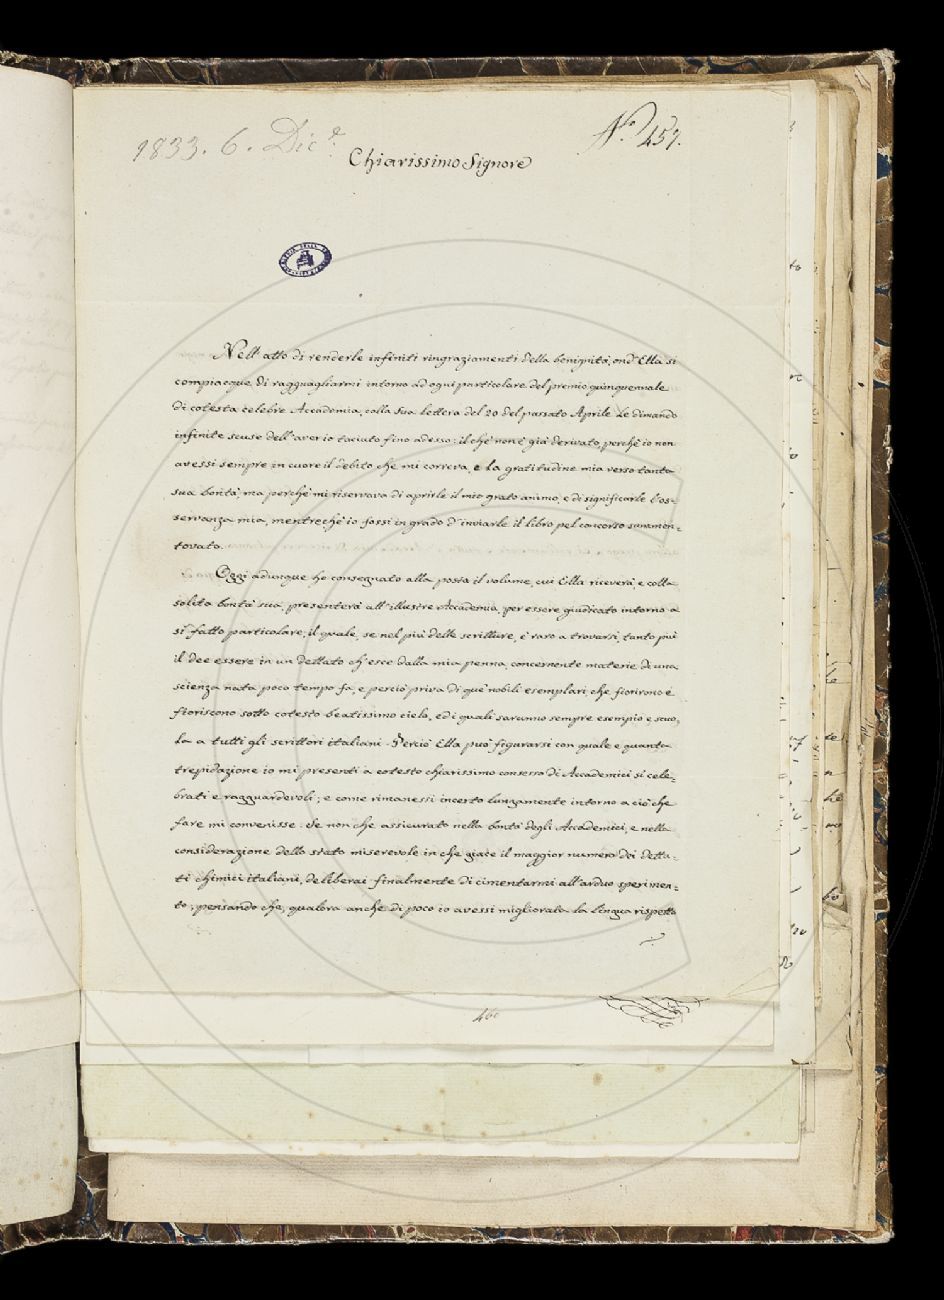 1833. 6. Dic.e
N.o 457.
Chiarissimo Signore
Nell'atto di renderle infiniti ringraziamenti della benignità, ond'Ella si
compiacque di ragguagliarmi intorno ad ogni particolare del premio quinquennale
di cotesta celebre Accademia, colla sua lettera del 20 del passato Aprile Le dimando
infinite scuse dell'aver io taciuto fino adesso: il che non è già derivato, perchè io non
avessi sempre in cuore il debito che mi correva, e la gratitudine mia verso tanta
sua bontà, ma perchè mi riservava di aprirle il mio grato animo, e di significarle l'os-
servanza mia, mentrechè io fossi in grado d'inviarle il libro pel concorso summen-
tovato.
Oggi adunque ho consegnato alla posta il volume, cui Ella riceverà, e colla
solita bontà sua, presenterà all'illustre Accademia, per essere giudicato intorno a
sì fatto particolare, il quale, se nel più delle scritture, è raso a trovarsi, tanto più
il dee essere in un dettato ch'esce dalla mia penna, concernente materie di una
scienza nata poco tempo fa, e perciò priva di que' nobili esemplari, che fiorirono e
fioriscono sotto cotesto beatissimo cielo, ed i quali saranno sempre esempio e scuo-
la a tutti gli scrittori italiani. Perciò Ella può figurarsi con quale e quanta
trepidazione io mi presenti a cotesto chiarissimo consesso di Accademici sì cele-
brati e ragguardevoli; e come rimanessi incerto lungamente intorno a ciò che
fare mi convenisse. Se non che assicurato nella bontà degli Accademici, e nella
considerazione dello stato miserevole in che giace il maggior numero dei detta-
ti chimici italiani, deliberai finalmente di cimentarmi all'arduo sperimen-
to; pensando che, qualora anche di poco io avessi migliorata la lingua rispetto
460